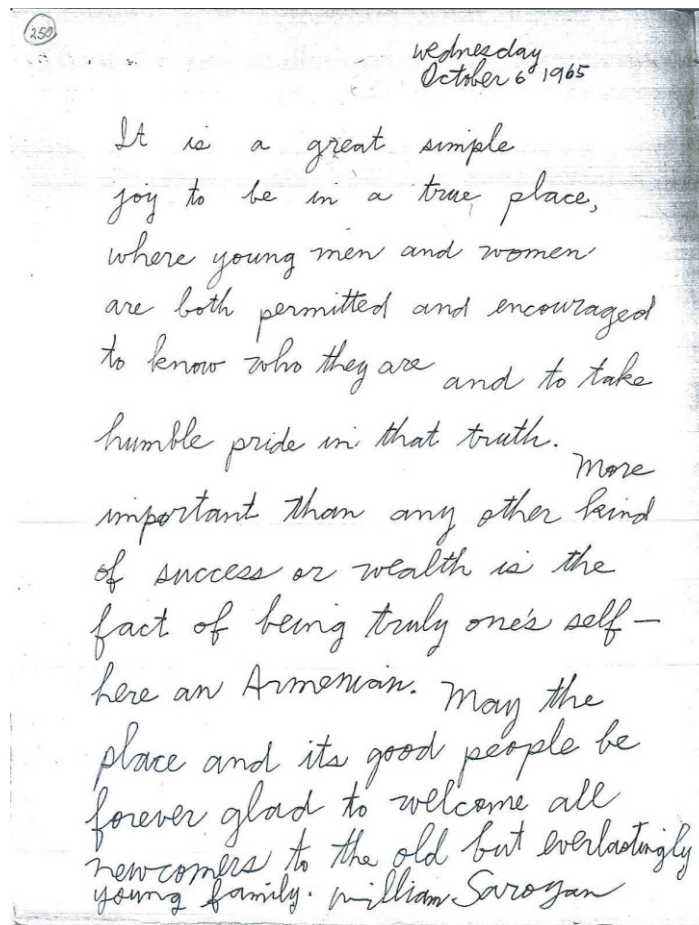 250
Wednesday
October 6 1965
It is a great simple
joy to be in a true place,
where young men and women
are both permitted and encouraged
to know who they are and to take
humble pride in that truth. More
important than any other kind
of success or wealth is the
fact of being truly one's self—
here an Armenian. May the
place and its good people be
forever glad to welcome all
newcomers to the old but everlastingly
young family. William Saroyan